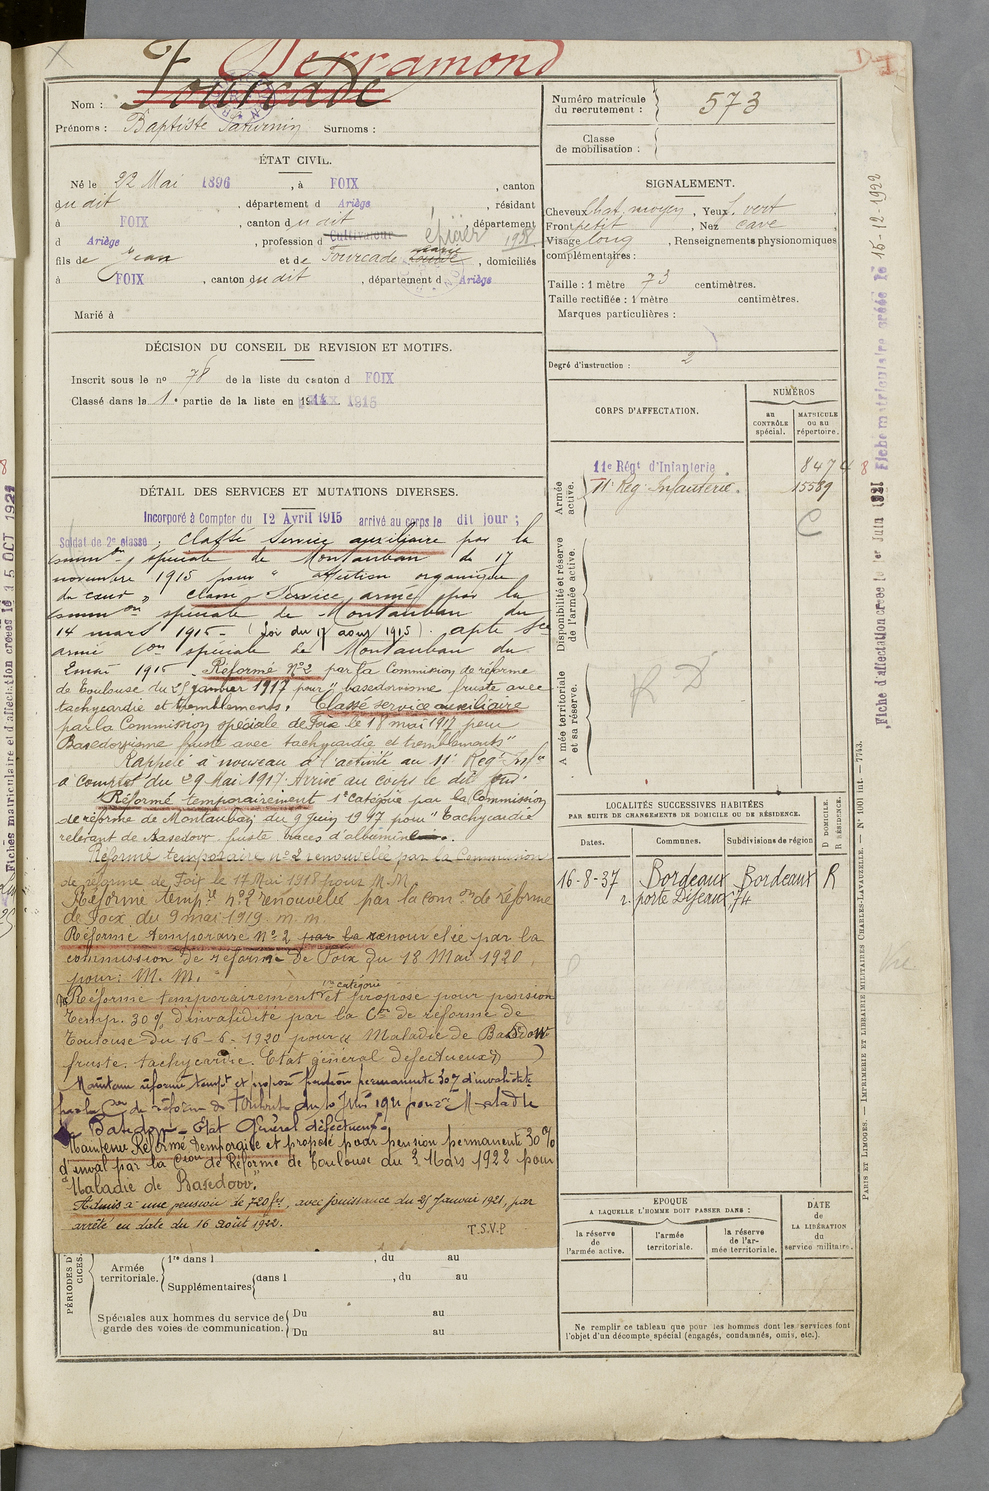 Derramond
Nom : Fourcade
Prénoms : Baptiste Saturnin Surnoms :
ÉTAT CIVIL.
Né le 22 Mai 1896, à FOIX, canton
du dit, département d Ariège, résidant
à FOIX, canton du dit, département
d Ariège, profession d Cultivateur épicier 1938
fils de Jean et de Fourcade Marie, domiciliés
à FOIX, canton du dit, département d Ariège
Marié à
DÉCISION DU CONSEIL DE REVISION ET MOTIFS.
Inscrit sous le no 78 de la liste du canton d FOIX
Classé dans la 1e partie de la liste en 1916
DÉTAIL DES SERVICES ET MUTATIONS DIVERSES.
Incorporé à Compter du 12 Avril 1915 arrivé au corps le dit jour ;
Soldat de 2e classe ; Classé Service auxiliaire par la
comm on spéciale de Montauban du 17
novembre 1915 pour " affection organique
du cœur " Classé Service armé par la
comm on spéciale de Montauban du
14 mars 1915 - (Loi du 17 aout 1915). apte Sce
armé Con spéciale de Montauban du
2 mai 1915 Réformé No 2 par la Commission de réforme
de Toulouse du 25 janvier 1917 pour " basedovisme fruste avec
tachycardie et tremblements. Classé service auxiliaire
par la Commission spéciale de Foix le 18 mai 1917 pour
Basedovisme fruste avec tachycardie et tremblements "
Rappelé à nouveau à l'activité au 11e Regt Infie
à compter du 29 Mai 1917. Arrivé au corps le dit jour
Réformé temporairement 1e Catégorie par la Commission
de réforme de Montauban du 9 juin 1917 pour " tachycardie
relevant de Basedow fruste traces d'albumine.
Réforme temporaire no 2 renouvelée par la Commission
de réforme de Foix le 17 Mai 1918 pour M. M.
Réforme tempre no 2 renouvelée par la com on de réforme
de Foix du 9 mai 1919. m. m
Réforme temporaire No 2 par la renouvelée par la
commission de réforme de Foix du 18 Mai 1920
pour : M. M. "
Réformé temporairement 1re catégorie et proposé pour pension
temp. 30 % d'invalidité par la Con de réforme de
Toulouse du 16-6-1920 pour " Maladie de Basedow
fruste. tachycardie. Etat général défectueux "
Maintenu réformé tempt et proposé pension permanente 30 % d'invalidité
par la Con de réforme de Toulouse du 10 Juin 1921 pour " Maladie
de Basedow - Etat Général défectueux "
Maintenu Réformé temporaire et proposé pour pension permanente 30 %
d'inval par la Con de Réforme de Toulouse du 3 Mars 1922 pour
" Maladie de Basedow. "
Admis à une pension de 720 fcs, avec jouissance du 25 Janvier 1921, par
arrêté en date du 16 Août 1922.
T.S.V.P
PÉRIODES D'
CICES.
Armée territoriale. 1re dans l , du au
Supplémentaires dans l , du au
Spéciales aux hommes du service de garde des voies de communication. Du au
Du au
Numéro matricule du recrutement : 573
Classe de mobilisation :
SIGNALEMENT.
Cheveux Chat. moyen, Yeux j. vert,
Front petit, Nez cave,
Visage long, Renseignements physionomiques
complémentaires :
Taille : 1 mètre 73 centimètres.
Taille rectifiée : 1 mètre centimètres.
Marques particulières :
Degré d'instruction : 2
CORPS D'AFFECTATION.
NUMÉROS
AU CONTRÔLE spécial.
MATRICULE ou au répertoire.
Armée active.
11e Régt d'Infanterie 8474
11e Reg Infanterie. 15589
C
Disponibilité et réserve de l'armée active.
Armée territoriale et sa réserve.
R D
LOCALITÉS SUCCESSIVES HABITÉES
PAR SUITE DE CHANGEMENTS DE DOMICILE OU DE RÉSIDENCE.
D DOMICILE.
R RÉSIDENCE.
Dates. Communes. Subdivisions de région
16-8-37 Bordeaux Bordeaux R
r. porte Dijeaux 74
EPOQUE
A LAQUELLE L'HOMME DOIT PASSER DANS :
la réserve de l'armée active.
l'armée territoriale.
la réserve de l'armée territoriale.
DATE de LA LIBÉRATION du service militaire.
Ne remplir ce tableau que pour les hommes dont les services font
l'objet d'un décompte spécial (engagés, condamnés, omis, etc.).
PARIS ET LIMOGES. — IMPRIMERIE ET LIBRAIRIE MILITAIRES CHARLES-LAVAUZELLE. — No 1001 int. — 7743.
Fiche d'affectation créée le 1er Juin 1921 Fiche matriculaire créée le 15-12-1922
Fiches matriculaire et d'affectation créées le 5 OCT 1921